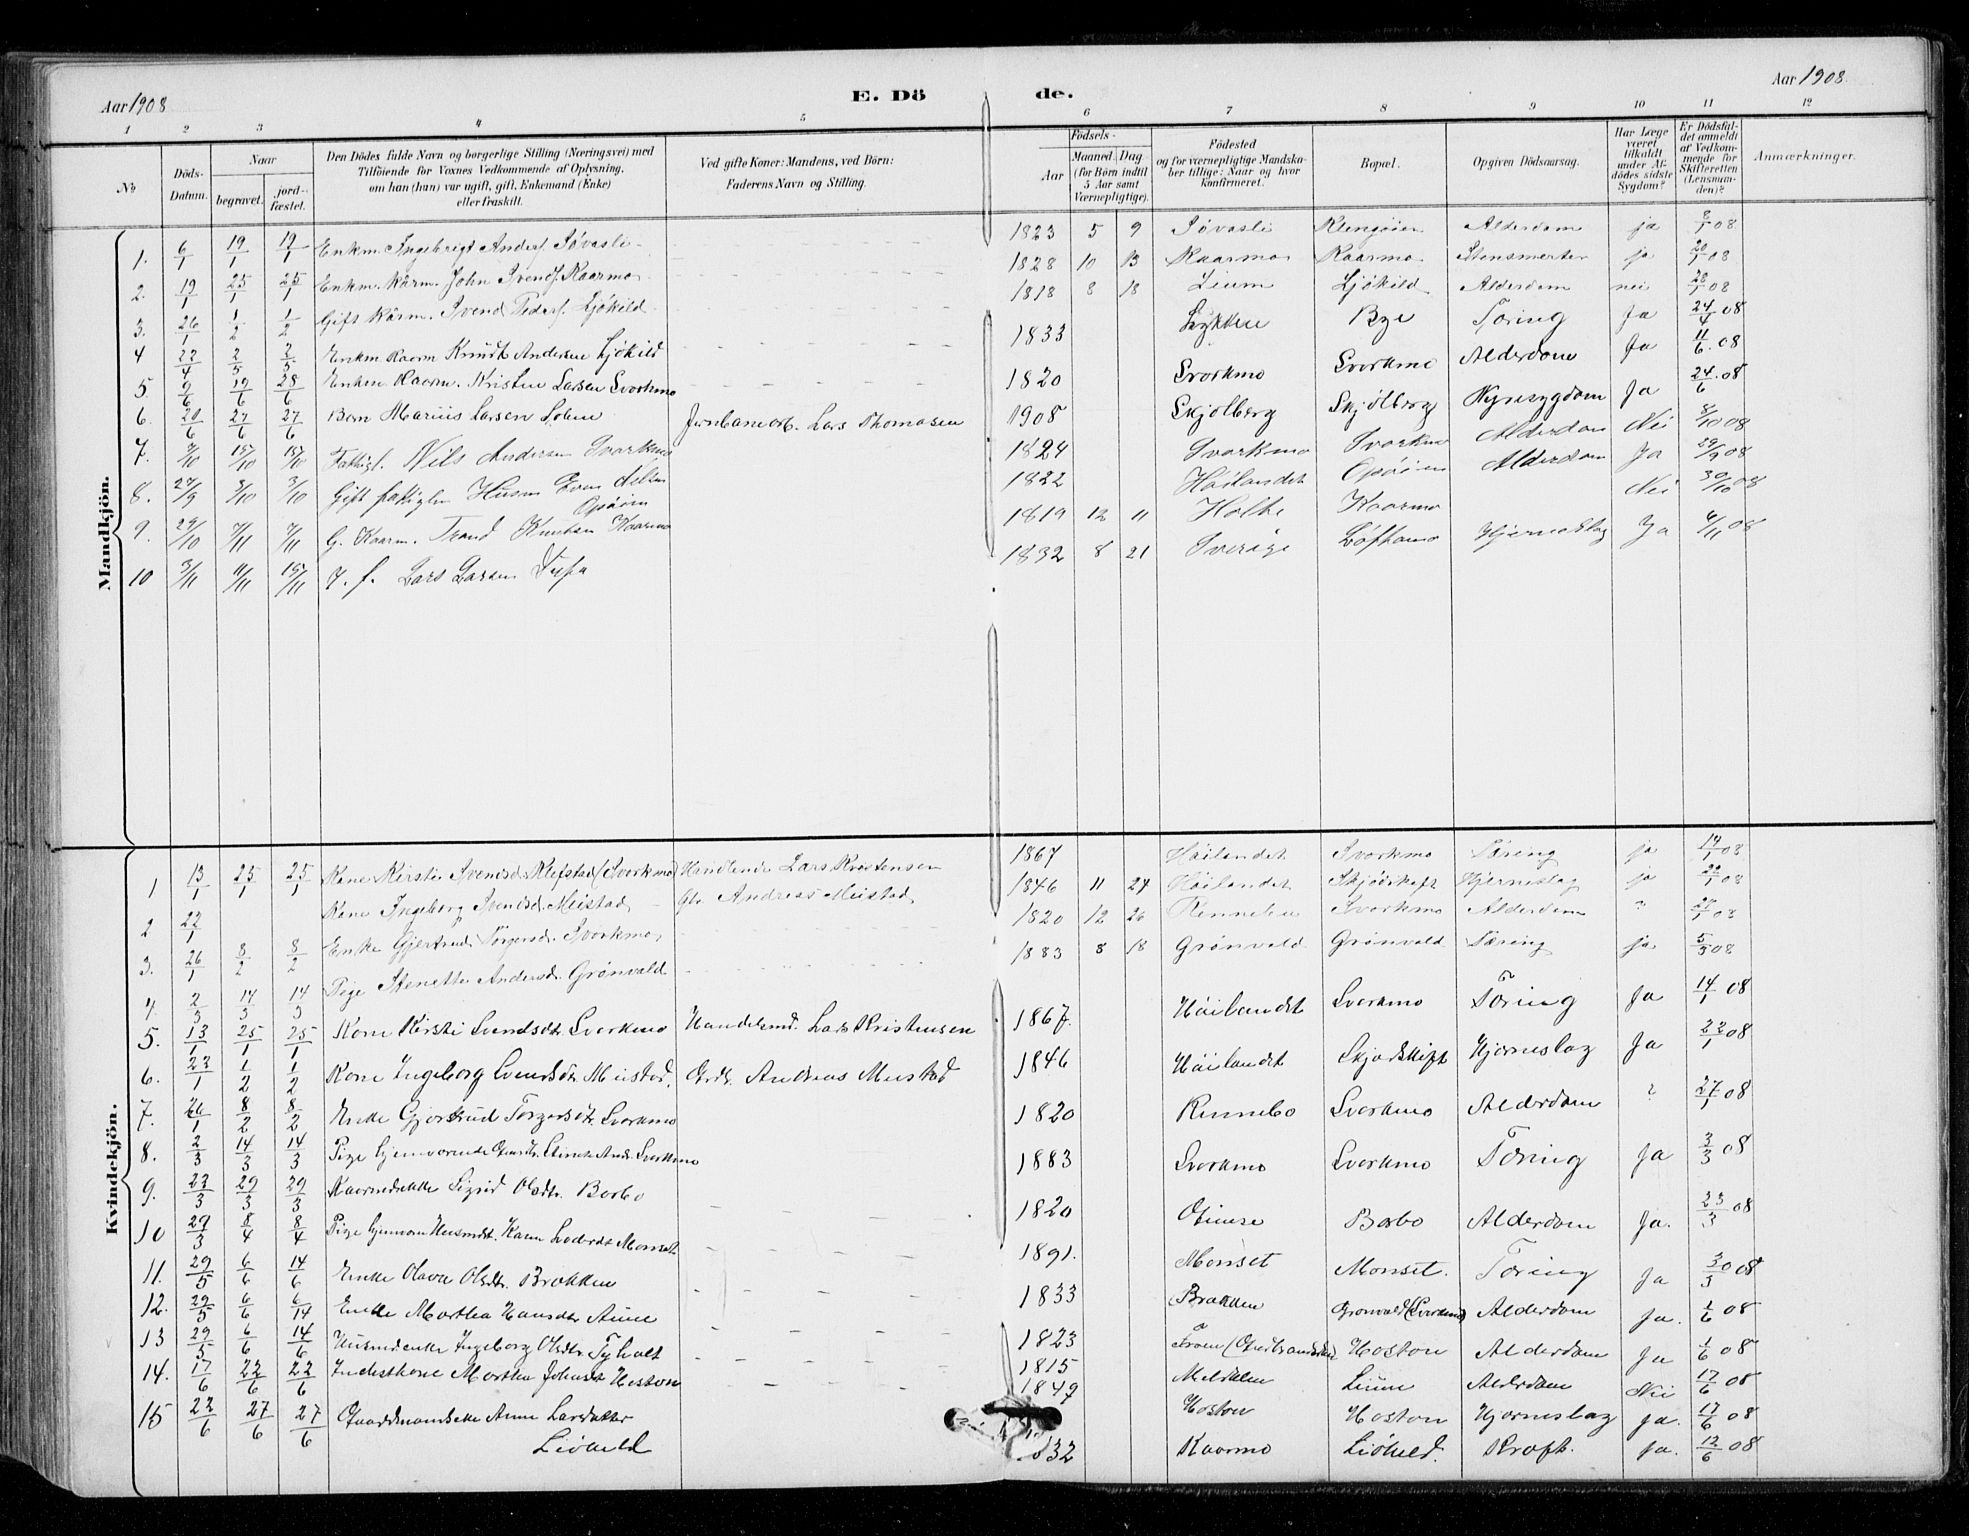 Aar 1908
E. Dö
de.
Aar 1908.
1 2 3 4 5 6 7 8 9 10 11 12
No
Döds-Datum.
Naar
begravet.
jord-fæstet.
Den Dödes fulde Navn og borgerlige Stilling (Næringsvei) med
Tilföiende for Voxnes Vedkommende af Oplysning,
om han (hun) var ugift, gift, Enkemand (Enke)
eller fraskilt.
Ved gifte Koner: Mandens, ved Börn:
Faderens Navn og Stilling.
Födsels-
Aar
Maaned. Dag
(for Börn indtil
5 Aar samt
Værnepligtige).
Födested
og for værnepligtige Mandska-
ber tillige: Naar og hvor
Konfirmeret.
Bopæl.
Opgiven Dödsaarsag.
Har Læge
været
tilkaldt
under Af-
dödes sidste
Sygdom?
Er Dödsfal-
det anmeldt
af Vedkom-
mende for
Skifteretten
(Lensman-
den)?
Anmærkninger.
Mandkjön.
1. 6/1 19/1 19/1 Enkm. Ingebrigt Anders. Jøvasli 1823 5 9 Jøvasli Alderdom ja 8/1 08
2. 19/1 25/1 25/1 Enkm. Kårm. John Svends. Kaarmo 1828 10 13 Kaarmo Kaarmo ja 20/1 08
3. 26/1 1/2 1/2 Gift Kårm. Svend Peders. Ljøkild 1818 8 18 Lium Ljøkild Alderdom nei 28/1 08
4 22/4 2/5 2/5 Enkm Kaarm Knudt Andersen Ljøkild 1833 Lykken Bye Tæring Ja 24/4 08
5. 9/6 19/6 28/6 Enkm Kaarm. Kristen Larsen Svorkmo 1820 Svorkmo Svorkmo Alderdom Ja 11/6. 08
6. 20/6 27/6 27/6 Barn Marius Larsen Jernbanearb. Lars Thomasen 1908 Skjølberg Skjølberg Nyresygdom Ja 24/6. 08
7. 7/10 15/10 15/10 Fattigl. Nils Andersen Svorkmo 1824 Svorkmo Svorkmo Alderdom Nei 8/10 08
8. 27/9 3/10 3/10 Gift fattiglem Husm Even 1822 Høilandet Alderdom Ja 29/9 08
9. 29/10 7/11 7/11 G. Kaarm. Trond Knutsen Kaarmo 1819 12 11 Holte Kaarmo Nei 30/10 08
10 3/11 11/11 15/11 Lars Larsen 1832 8 21 Sverige Løftamo Hjerneslag Ja 6/11 08
Kvindekjön.
1 13/1 25/1 25/1 Kone Kirsti Svendsd. Klefstad (Svorkmo) Handlende Lars Kristensen 1867 Høilandet Svorkmo Tæring ja 14/1 08
2 22/1 Kone Ingeborg Svendsd. Meistad Gbr. Andreas Meistad 1846 11 24 Høilandet Skjødskift Hjerneslag ja 22/1 08
3. 26/1 8/2 8/2 Enke Gjertrud Torgersd. Svorkmo 1820 12 26 Rennebu Svorkmo Alderdom ? 27/1 08
4. 2/3 14/3 14/3 Pige Stenette Andersd. Grønvold 1883 8 18 Grønvold Grønvold Tæring ja 5/3 08
5. 13/1 25/1 25/1 Kone Kirsti Svendsdtr. Svorkmo Handelsmd. Lars Kristensen 1867. Høilandt Svorkmo Tæring Ja 14/1 08
6. 22/1 1/2 1/2 Kone Ingeborg Svendsdtr. Meistad. Grdb. Andreas Meistad 1846 Høilandt Skjødskift Hjerneslag Ja 22/1 08
7. 26/1 8/2 8/2 Enke Gjertrud Torgersdtr. Svorkmo 1820 Rennebo Svorkmo Alderdom ? 27/1 08
8. 2/3 14/3 14/3 Pige hjemværende And. Svorkmo 1883 Svorkmo Svorkmo Tæring Ja 3/3 08
9. 23/3 29/3 29/3 Kaarmdsenke Sigrid Olsdtr. Borbo 1820 Borbo Alderdom Ja. 23/3 08
10 29/3 8/4 8/4 Pige Karen Monset 1891. Monset Monset. Tæring Ja 30/3 08
11. 29/5 6/6 14/6 Enke Olava Olsdtr. Brakken 1833 Brakken Grønvold (Svorkmo) Alderdom Ja. 1/6 08
12. 29/5 6/6 6/14 Enke Marthea Hansdtr Aune 1823 Hoston Alderdom Ja 1/6 08
13 29/5 6/6 14/6 Husmdenke Ingeborg Olsdtr. 1815 Meldalen Lium Alderdom Nei 17/6 08
14. 17/6 22/6 22/6 Inderstkone Marthea Johnsdt Hoston 1849 Hoston Hoston Hjerneslag ja. 17/6 08
15 22/6 27/6 27/6 Gaardmandsenke Anne Larsdatter 1832 Kaarmo Kræft. ja. 12/6 08